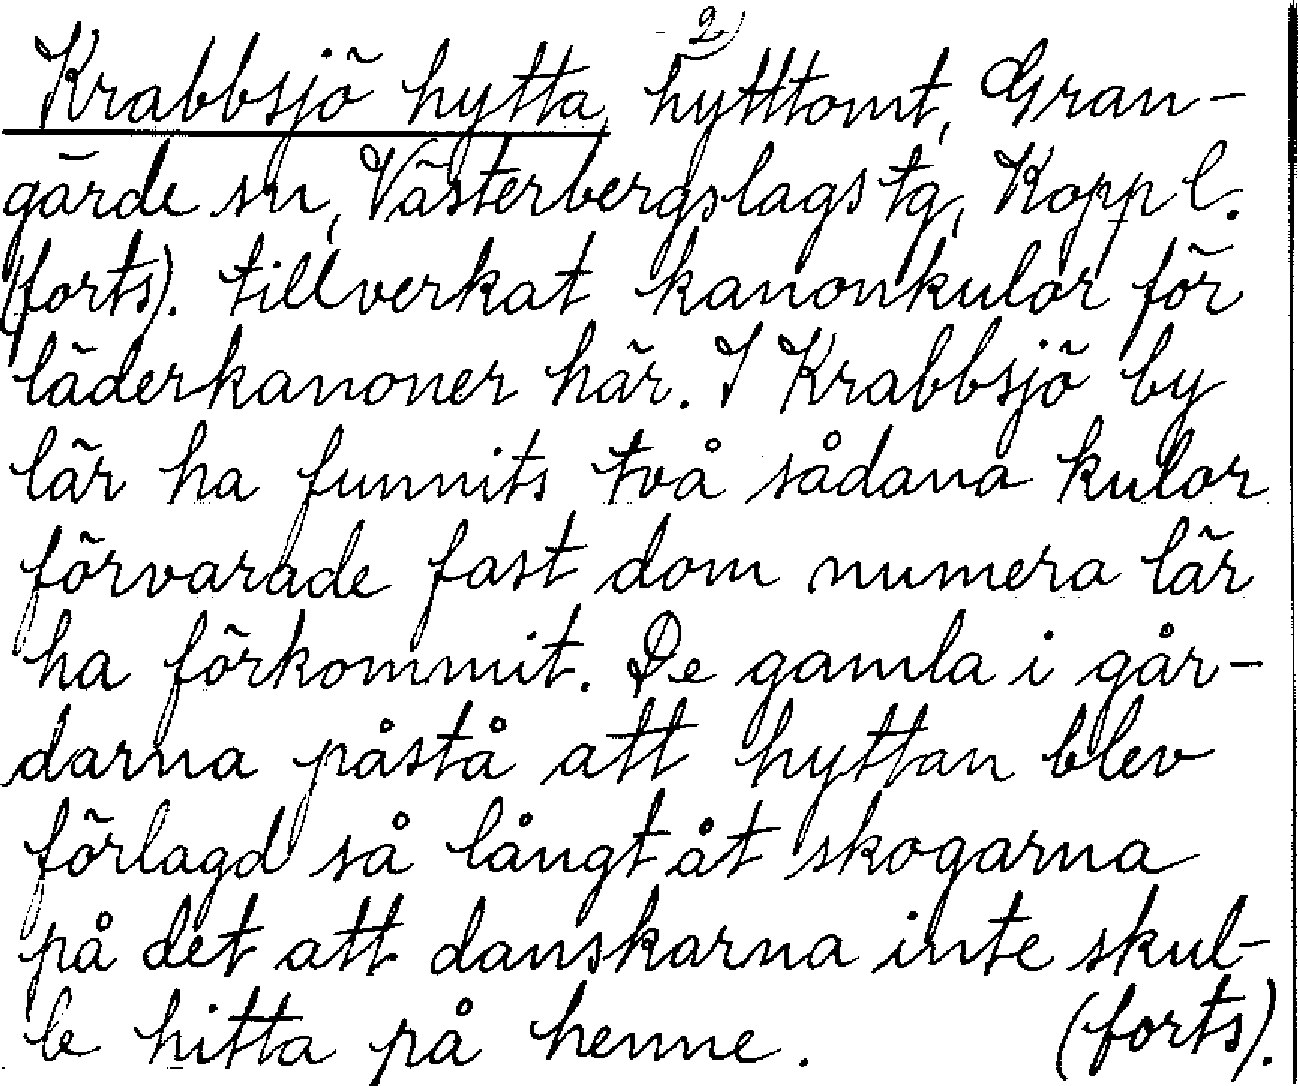 2)
Krabbsjö hytta, hytttomt, Gran-
gärde sn, Västerbergslags tg, Kopp l.
(forts). tillverkat kanonkulor för
läderkanoner här. I Krabbsjö by
lär ha funnits två sådana kulor
förvarade fast dom numera lär
ha förkommit. De gamla i går-
darna påstå att hyttan blev
förlagd så långt åt skogarna
på det att danskarna inte skul-
le hitta på henne. (forts).